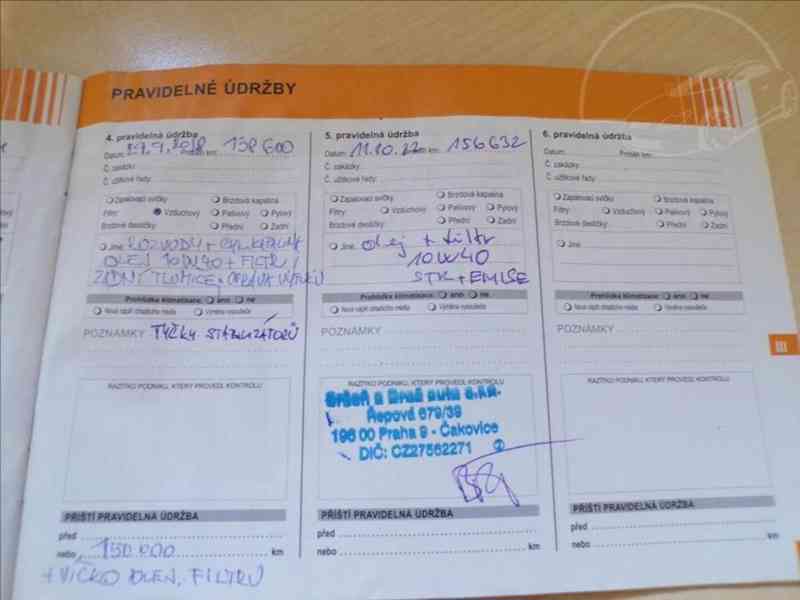 PRAVIDELNÉ ÚDRŽBY
4. pravidelná údržba
Datum: 2018 km: 138 600
Č. zakázky:
Č. účtové řady:
Zapalovací svíčky Brzdová kapalina
Filtry: Vzduchový Palivový Pylový
Brzdové destičky: Přední Zadní
Jiné: ROZVODY +
OLEJ 10W40 + FILTR /
ZADNÍ TLUMIČE + OPRAVA
Prohlídka klimatizace: ano ne
Nová náplň chladicího média Výměna vysoušeče
POZNÁMKY TYČKY STABILIZÁTORŮ
RAZÍTKO PODNIKU, KTERÝ PROVEDL KONTROLU
PŘÍŠTÍ PRAVIDELNÁ ÚDRŽBA
před
nebo 150.000 km
+ VÍČKO OLEJ. FILTRU
5. pravidelná údržba
Datum: 11.10.22 km: 156632
Č. zakázky:
Č. účtové řady:
Zapalovací svíčky Brzdová kapalina
Filtry: Vzduchový Palivový Pylový
Brzdové destičky: Přední Zadní
Jiné: olej + filtr
10W40
STK + EMISE
Prohlídka klimatizace: ano ne
Nová náplň chladicího média Výměna vysoušeče
POZNÁMKY
RAZÍTKO PODNIKU, KTERÝ PROVEDL KONTROLU
auto s.r.o.
Řepová 679/39
196 00 Praha 9 - Čakovice
DIČ: CZ27562271
PŘÍŠTÍ PRAVIDELNÁ ÚDRŽBA
před
nebo km
6. pravidelná údržba
Datum: Proběh km:
Č. zakázky:
Č. účtové řady:
Zapalovací svíčky Brzdová kapalina
Filtry: Vzduchový Palivový Pylový
Brzdové destičky: Přední Zadní
Jiné:
Prohlídka klimatizace: ano ne
Nová náplň chladicího média Výměna vysoušeče
POZNÁMKY
RAZÍTKO PODNIKU, KTERÝ PROVEDL KONTROLU
PŘÍŠTÍ PRAVIDELNÁ ÚDRŽBA
před
nebo km
III